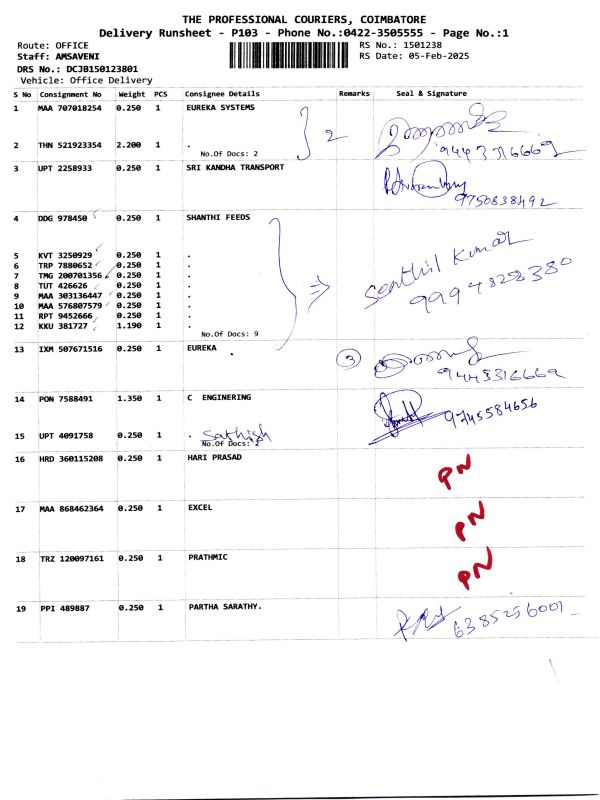 THE PROFESSIONAL COURIERS, COIMBATORE
Delivery Runsheet - P103 - Phone No.:0422-3505555 - Page No.:1
Route: OFFICE
Staff: AMSAVENI
RS No.: 1501238
RS Date: 05-Feb-2025
DRS No.: DCJB150123801
Vehicle: Office Delivery
S No Consignment No Weight PCS Consignee Details Remarks Seal & Signature
1 MAA 707018254 0.250 1 EUREKA SYSTEMS
2
2 THN 521923354 2.200 1 .
No.Of Docs: 2
9443316669
3 UPT 2258933 0.250 1 SRI KANDHA TRANSPORT
9750838492
4 DDG 978450 0.250 1 SHANTHI FEEDS
5 KVT 3250929 0.250 1 .
6 TRP 7880652 0.250 1 .
7 TMG 200701356 0.250 1 .
8 TUT 426626 0.250 1 .
9 MAA 303136447 0.250 1 .
10 MAA 576807579 0.250 1 .
11 RPT 9452666 0.250 1 .
12 KKU 381727 1.190 1 .
No.Of Docs: 9
Senthil Kumar
9994828380
13 IXM 507671516 0.250 1 EUREKA .
3
9443316669
14 PON 7588491 1.350 1 C ENGINERING
9745584656
15 UPT 4091758 0.250 1 . Sathish
No.Of Docs: 2
16 HRD 360115208 0.250 1 HARI PRASAD
PN
17 MAA 868462364 0.250 1 EXCEL
PN
18 TRZ 120097161 0.250 1 PRATHMIC
PN
19 PPI 489887 0.250 1 PARTHA SARATHY.
6385256001